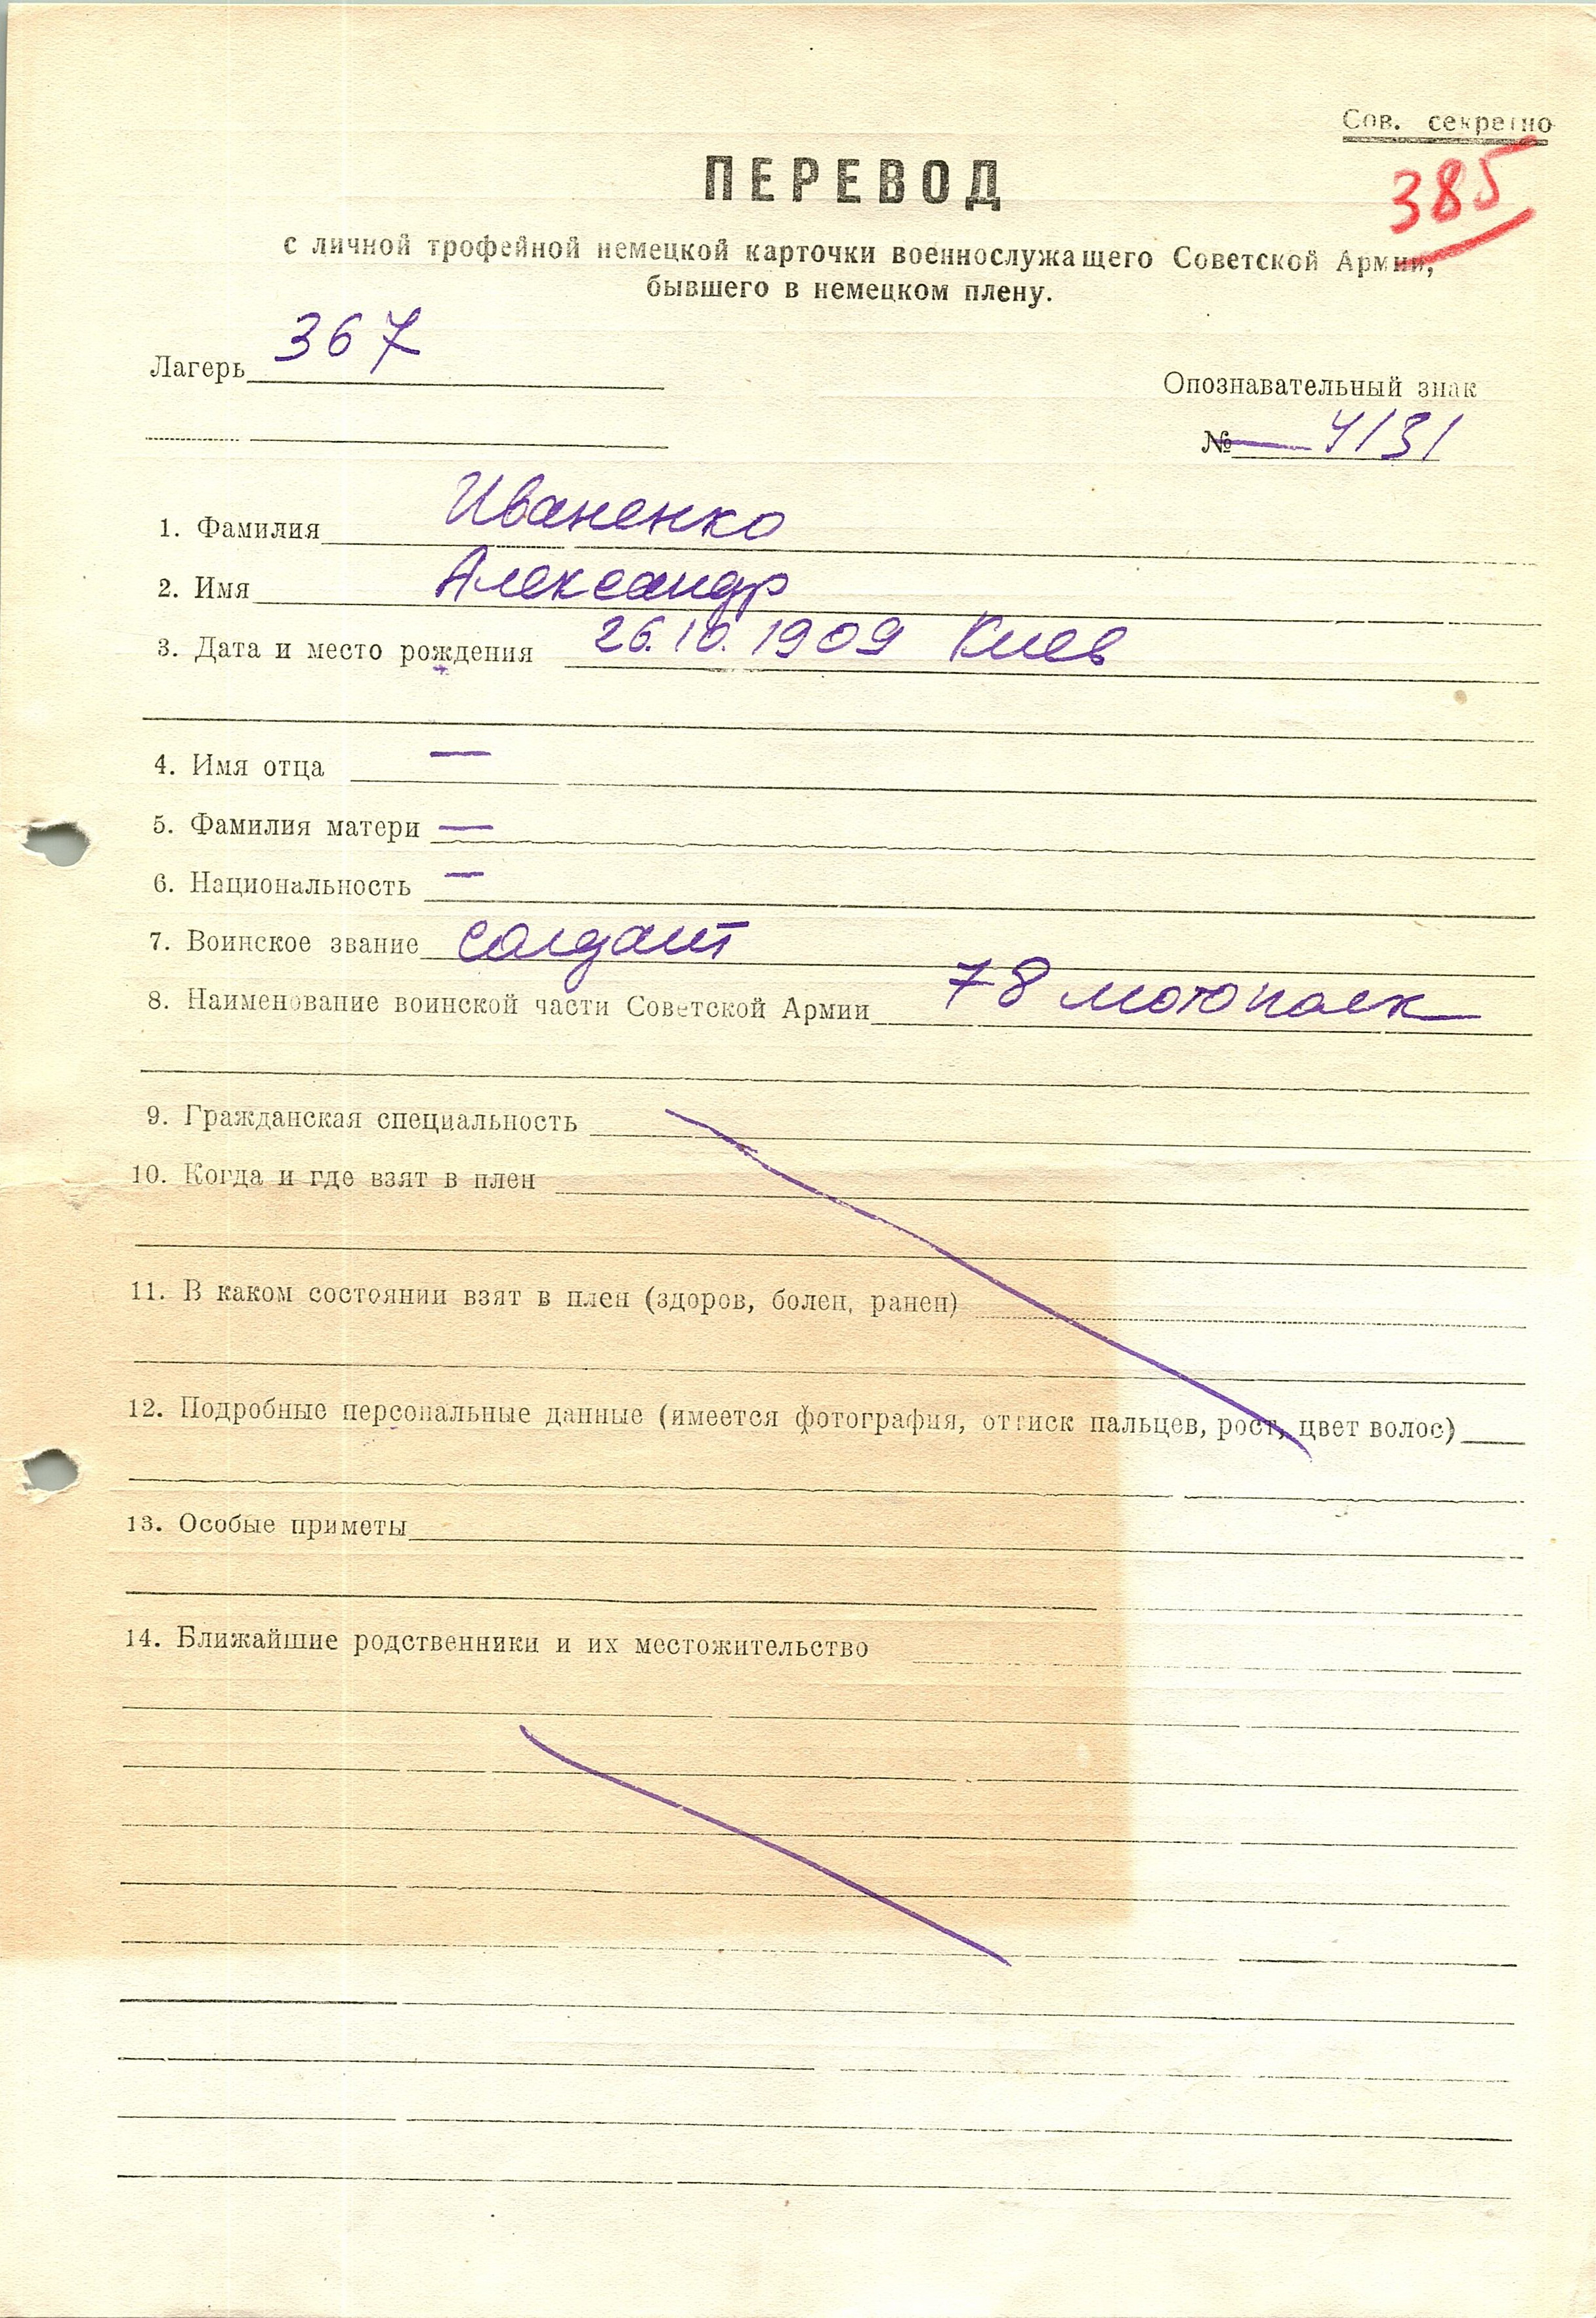 Сов. секретно
385
ПЕРЕВОД
с личной трофейной немецкой карточки военнослужащего Советской Армии,
бывшего в немецком плену.
Лагерь 367
Опознавательный знак
№ — 4131
1. Фамилия Иваненко
2. Имя Александр
3. Дата и место рождения 26.10.1909 Киев
4. Имя отца —
5. Фамилия матери —
6. Национальность —
7. Воинское звание солдат
8. Наименование воинской части Советской Армии 78 мотополк
9. Гражданская специальность
10. Когда и где взят в плен
11. В каком состоянии взят в плен (здоров, болен, ранен)
12. Подробные персональные данные (имеется фотография, оттиск пальцев, рост, цвет волос)
13. Особые приметы
14. Ближайшие родственники и их местожительство